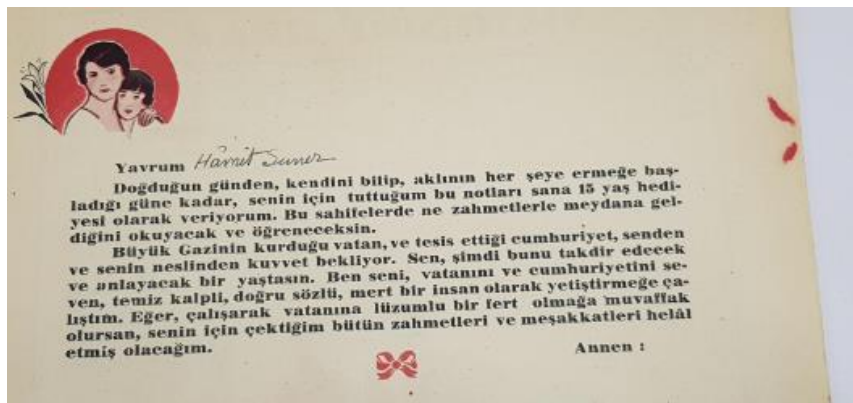 Yavrum Hâmit Suner
Doğduğun günden, kendini bilip, aklının her şeye ermeğe baş-
ladığı güne kadar, senin için tuttuğum bu notları sana 15 yaş hedi-
yesi olarak veriyorum. Bu sahifelerde ne zahmetlerle meydana gel-
diğini okuyacak ve öğreneceksin.
Büyük Gazinin kurduğu vatan, ve tesis ettiği cumhuriyet, senden
ve senin neslinden kuvvet bekliyor. Sen, şimdi bunu takdir edecek
ve anlayacak bir yaştasın. Ben seni, vatanını ve cumhuriyetini se-
ven, temiz kalpli, doğru sözlü, mert bir insan olarak yetiştirmeğe ça-
lıştım. Eğer, çalışarak vatanına lüzumlu bir fert olmağa muvaffak
olursan, senin için çektiğim bütün zahmetleri ve meşakkatleri helâl
etmiş olacağım.
Annen :